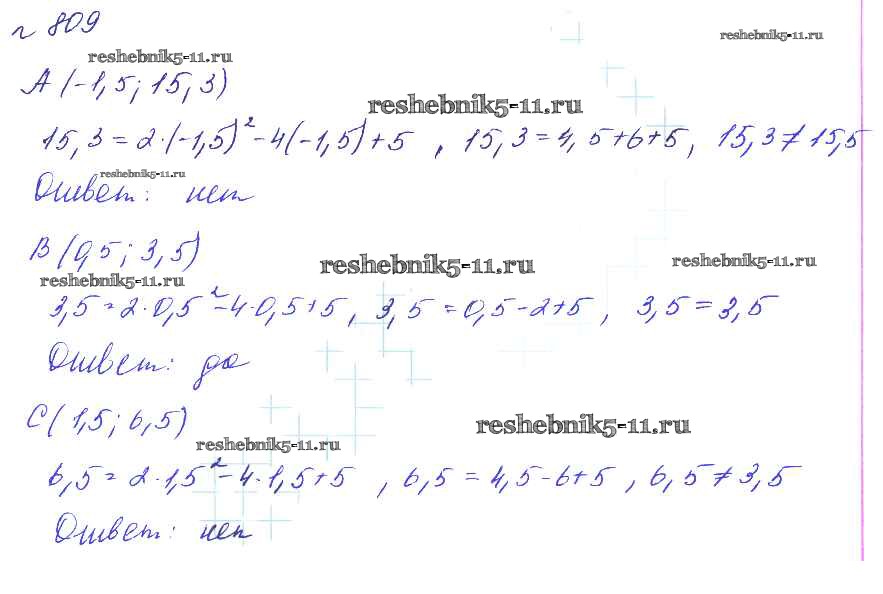 № 809
reshebnik5-11.ru
reshebnik5-11.ru
А (-1,5; 15,3)
reshebnik5-11.ru
15,3 = 2·(-1,5)² - 4(-1,5) + 5 , 15,3 = 4,5+6+5, 15,3 ≠ 15,5
reshebnik5-11.ru
Ответ: нет
В (0,5; 3,5)
reshebnik5-11.ru
reshebnik5-11.ru
reshebnik5-11.ru
3,5 = 2·0,5² - 4·0,5+5, 3,5 = 0,5-2+5, 3,5 = 3,5
Ответ: да
С (1,5; 6,5)
reshebnik5-11.ru
reshebnik5-11.ru
6,5 = 2·1,5² - 4·1,5+5 , 6,5 = 4,5-6+5 , 6,5 ≠ 3,5
Ответ: нет